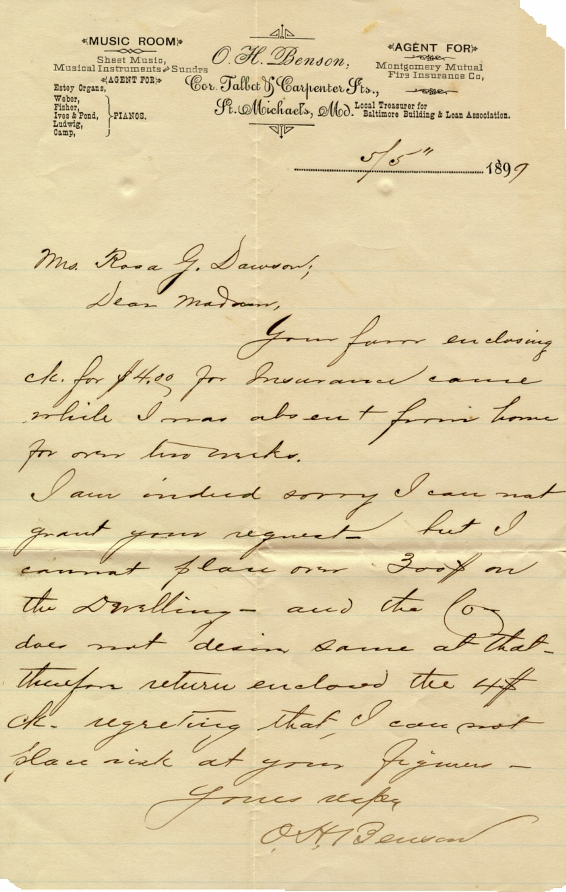 MUSIC ROOM
Sheet Music,
Musical Instruments and Sundrs
AGENT FOR
Estey Organs,
Weber,
Fisher,
Ives & Pond,
Ludwig,
Camp,
PIANOS.
O. H. Benson,
Cor. Talbot & Carpenter Sts.,
St. Michael's, Md.
AGENT FOR
Montgomery Mutual
Firs Insurance Co,
Local Treasurer for
Baltimore Building & Loan Association.
5/5" 1899
Mrs. Rosa G. Dawson;
Dear Madam,
Your favor enclosing
ck. for $4.00 for Insurance came
while I was absent from home
for over two weeks.
I am indeed sorry I can not
grant your request - but I
cannot place over 300$ on
the Dwelling - and the Co
does not desire same at that -
therefore return enclosed the 4$
ck - regreting that I can not
place risk at your figures -
Yours respy
O. H. Benson